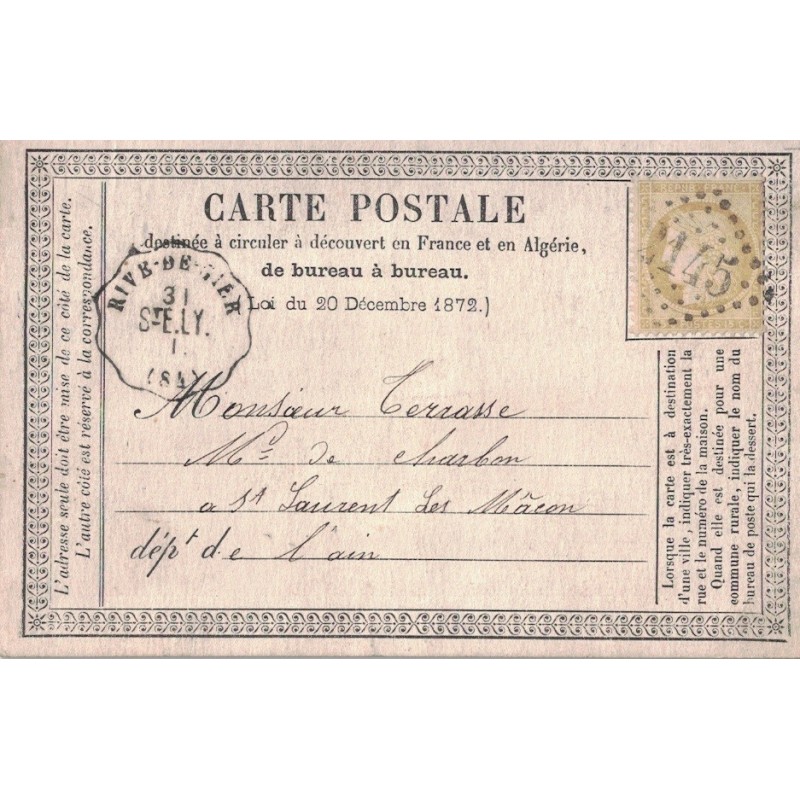 CARTE POSTALE
destinée à circuler à découvert en France et en Algérie,
de bureau à bureau.
(Loi du 20 Décembre 1872.)
L'adresse seule doit être mise de ce côté de la carte.
L'autre côté est réservé à la correspondance.
RIVE-DE-GIER
31
ST E.LY.
1.
(84)
145
Monsieur Terrasse
Md de charbon
a St Laurent Les Mâcon
dépt de l'ain
Lorsque la carte est à destination
d'une ville, indiquer très-exactement la
rue et le numéro de la maison.
Quand elle est destinée pour une
commune rurale, indiquer le nom du
bureau de poste qui la dessert.